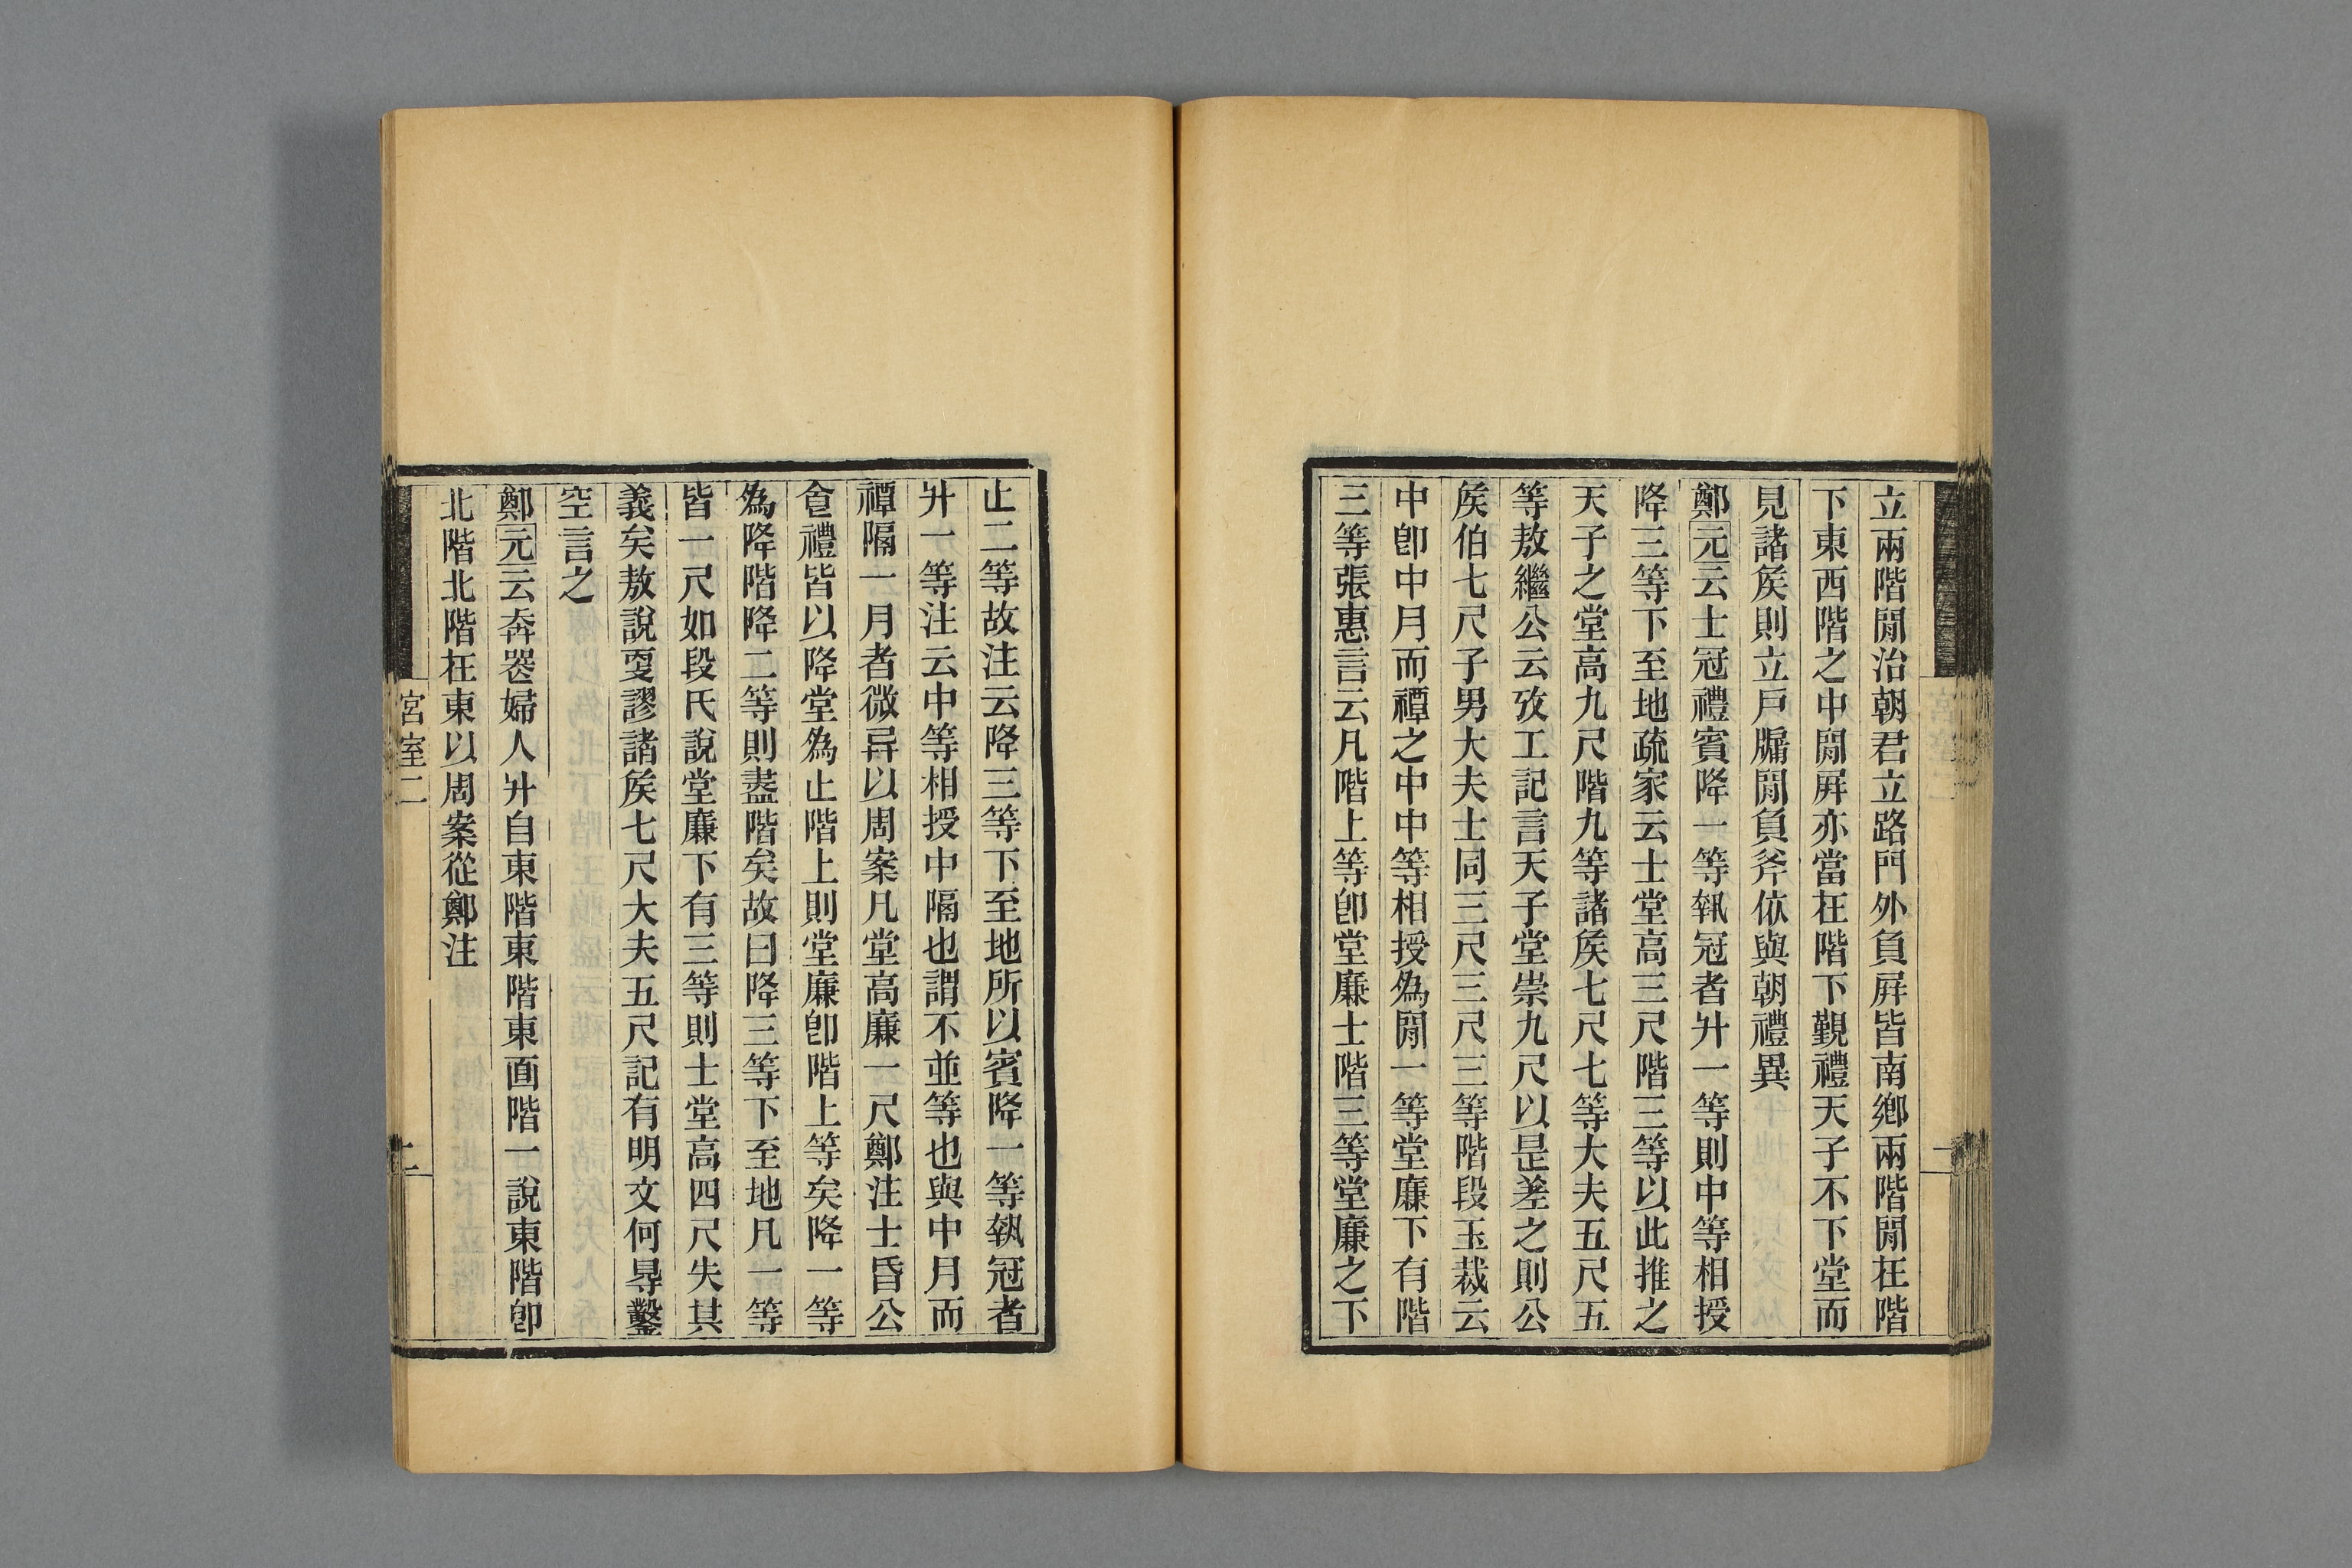 立兩階閒治朝君立路門外負屛皆南鄉兩階閒在階
下東西階之中閒屛亦當在階下覲禮天子不下堂而
見諸矦則立戶牖閒負斧依與朝禮異
鄭元云士冠禮賓降一等執冠者升一等則中等相授
降三等下至地疏家云士堂高三尺階三等以此推之
天子之堂高九尺階九等諸矦七尺七等大夫五尺五
等敖繼公云攷工記言天子堂崇九尺以是差之則公
矦伯七尺子男大夫士同三尺三尺三等階段玉裁云
中卽中月而禫之中中等相授爲閒一等堂廉下有階
三等張惠言云凡階上等卽堂廉士階三等堂廉之下
止二等故注云降三等下至地所以賓降一等執冠者
升一等注云中等相授中隔也謂不並等也與中月而
禫隔一月者微异以周案凡堂高廉一尺鄭注士昏公
食禮皆以降堂爲止階上則堂廉卽階上等矣降一等
爲降階降二等則盡階矣故曰降三等下至地凡一等
皆一尺如段氏說堂廉下有三等則士堂高四尺失其
義矣敖說叓謬諸矦七尺大夫五尺記有明文何㝵鑿
空言之
鄭元云奔喪婦人升自東階東階東面階一說東階卽
北階北階在東以周案從鄭注
宮室二
二